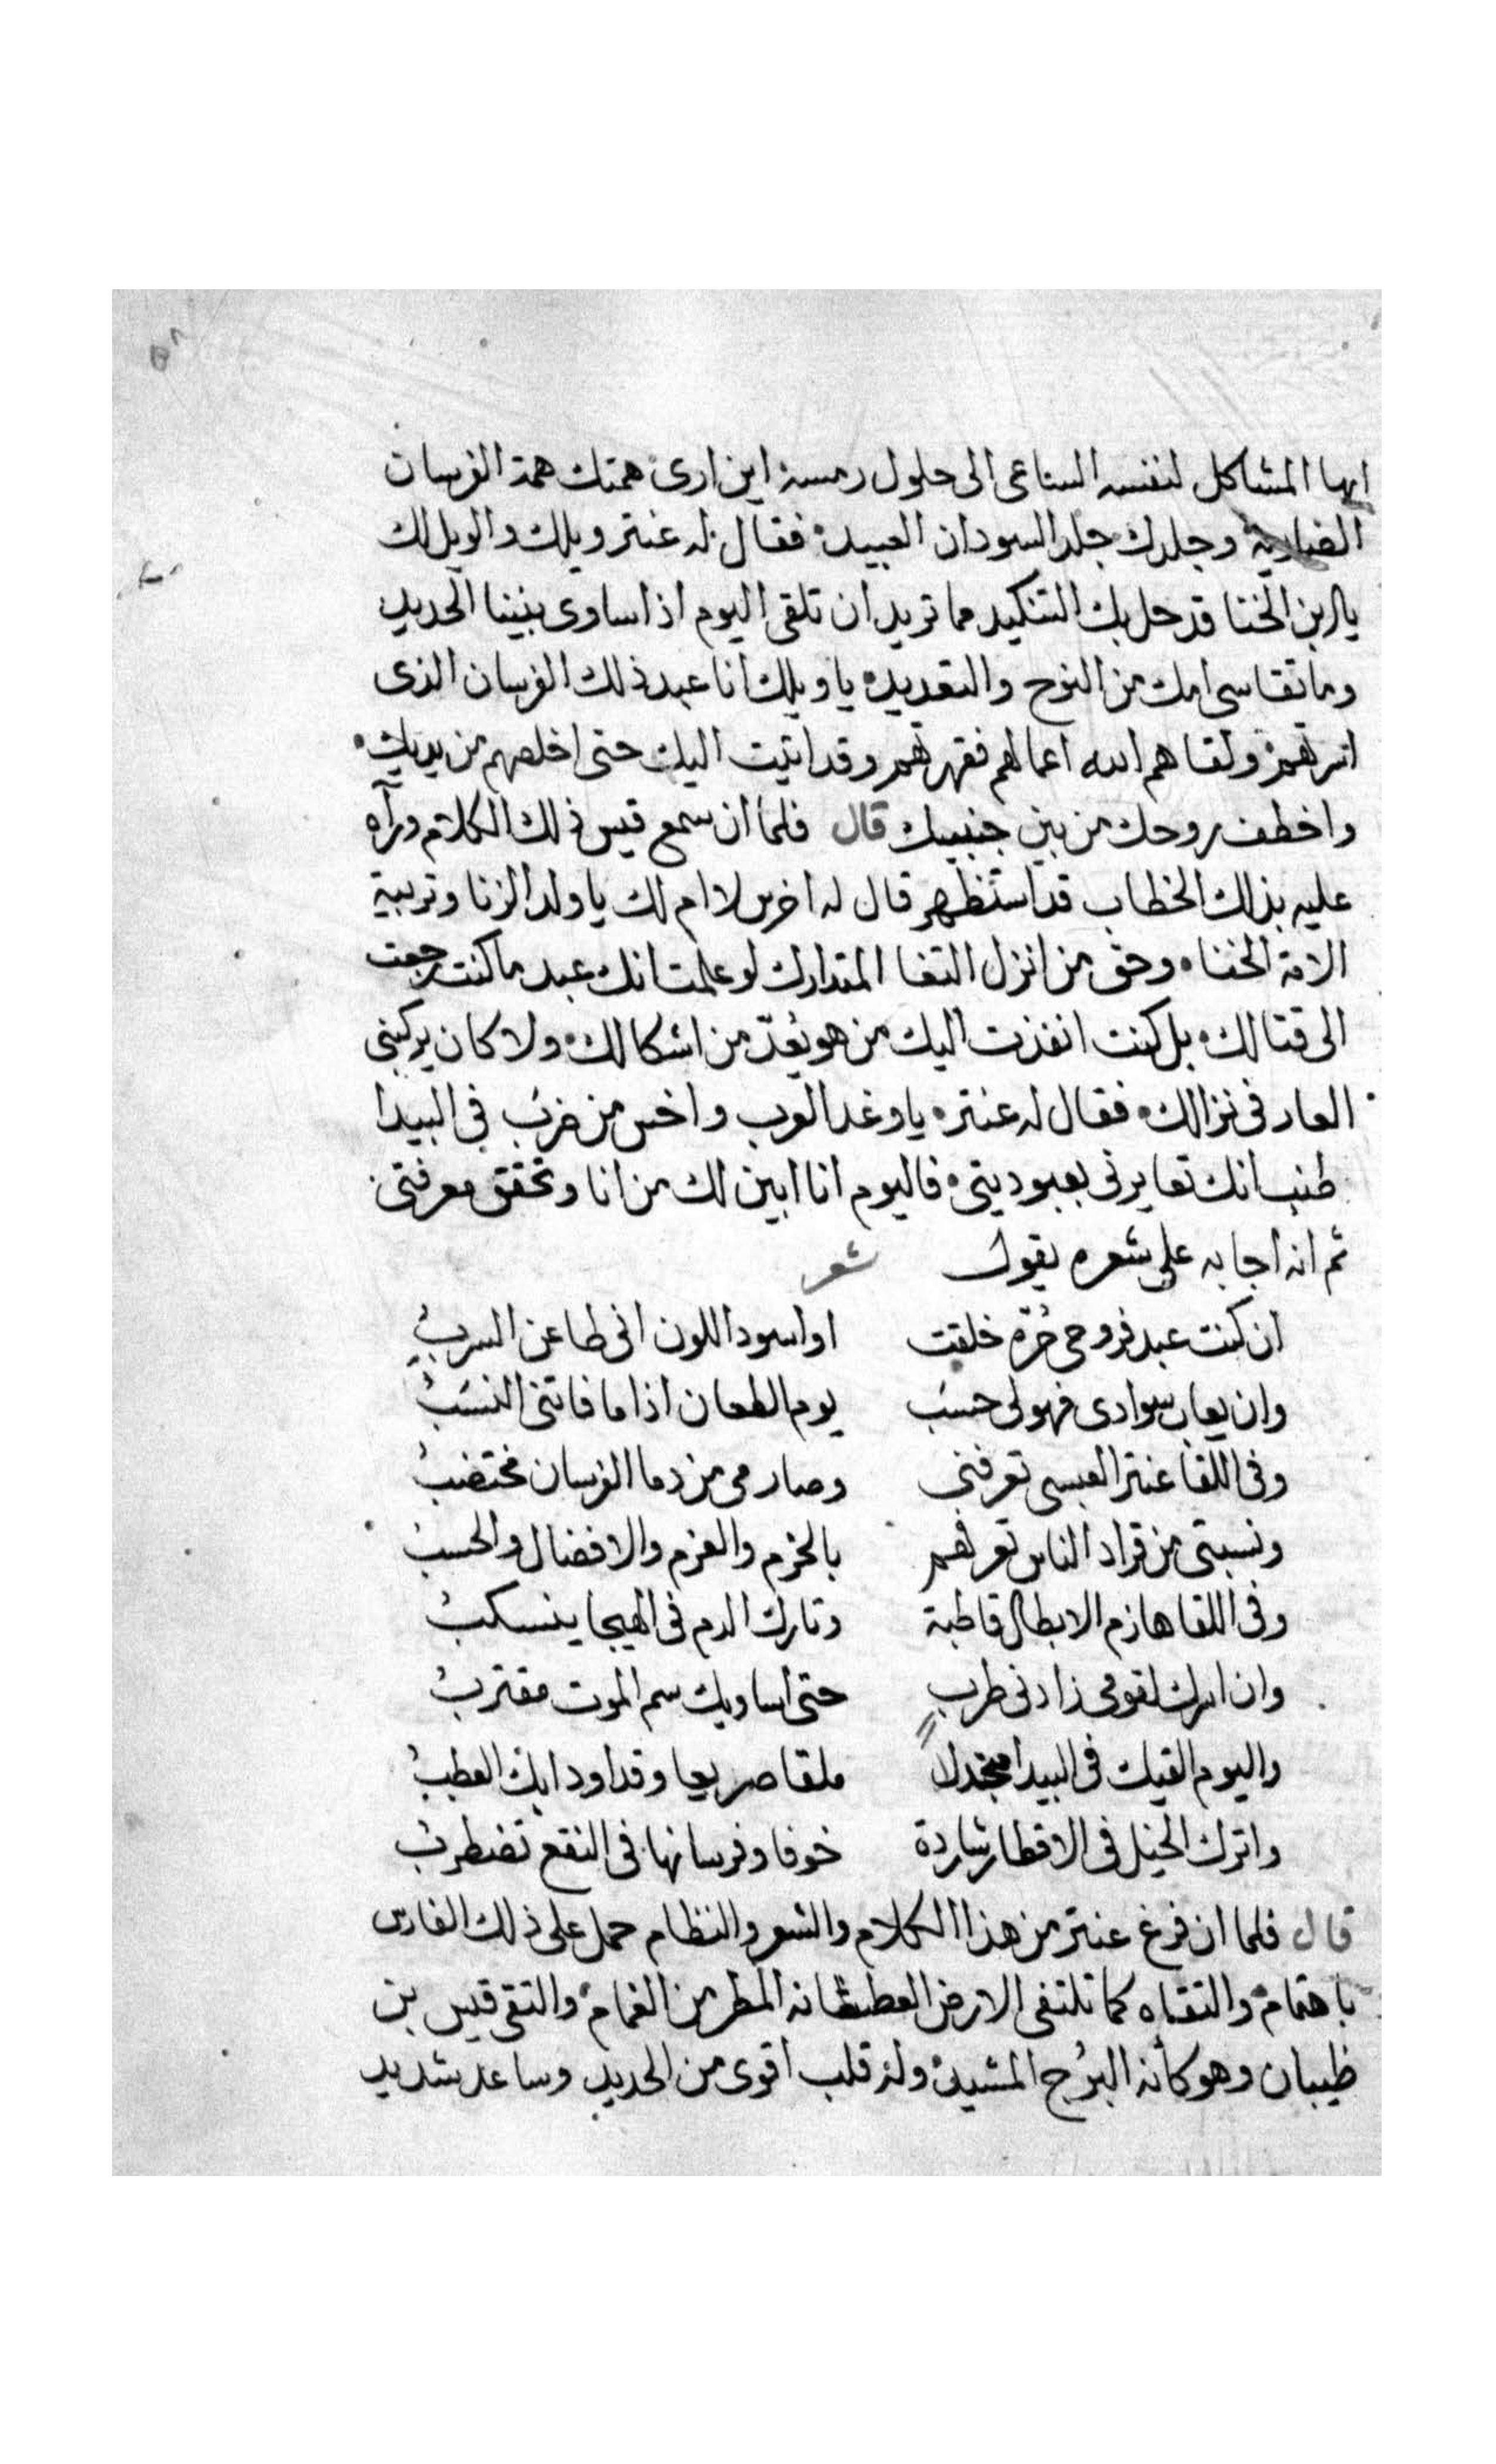 ٥٨
ايها المشاكل لنفسه الساعى الى حلول رمسه اين ارى همتك همة الفرسان
وجلدك جلد السودان العبيد فقال له عنتر ويلك والويل لك
يا ابن الخنا قد حل بك التنكيد مما تريد ان تلقى اليوم اذا ساوى بيننا الحديد
وما تقاسى امك من النوح والتعديد يا ويلك انا عبد ذلك الفرسان الذى
اسرتهم ولقاهم الله اعمالهم فقهرتهم وقد اتيت اليك حتى اخلصهم من يديك
واخطف روحك من بين جنبيك قال فلما ان سمع قيس ذلك الكلام ورآه
عليه بذلك الخطاب قد استظهر قال له اخرس لا ام لك يا ولد الزنا وتربية
الامة الخنا وحق من انزل المتدارك لو علمت انك عبد ما كنت رجعت
الى قتالك بل كنت انفذت اليك من هو يُعدّ من اشكالك ولا كان يركبنى
العار فى نزالك فقال له عنتره يا وغد العرب واخس من ضرب فى البيدا
طنب انك تعايرنى بعبوديتى فاليوم انا ابين لك من انا وتحقق معرفتى
ثم انه اجابه على شعره يقول شعر
ان كنت عبد فروحى حُرّه خلقت او اسود اللون انى طاعن السربُ
وان يعاب سوادى فهو لى حسَب يوم الطعان اذا ما فاتنى النسَبُ
وفى اللقا عنتر العبسى تعرفنى وصارمى من دما الفرسان مختضبُ
ونسبتى من قراد الناس تعرفهم بالحزم والعزم والافضال والحسبُ
وفى اللقا هازم الابطال قاطبة وتارك الدم فى الهيجا ينسكبُ
وان اسرك لقومى زادنى طرب حتى اساويك سم الموت مقتربُ
واليوم القيك فى البيدا منجدلاً ملقا صريعا وقد اودا بك العطبُ
واترك الخيل فى الاقطار شاردة خوفا وفرسانها فى النقع تضطربُ
قال فلما ان فرغ عنتر من هذا الكلام والشعر والنظام حمل على ذلك الفارس
باهتمام والتقاه كما تلتقى الارض العطشانه المطر من الغمام والتقى قيس بن
ظبيان وهو كأنه البرُج المشيد وله قلب اقوى من الحديد وساعد شديد